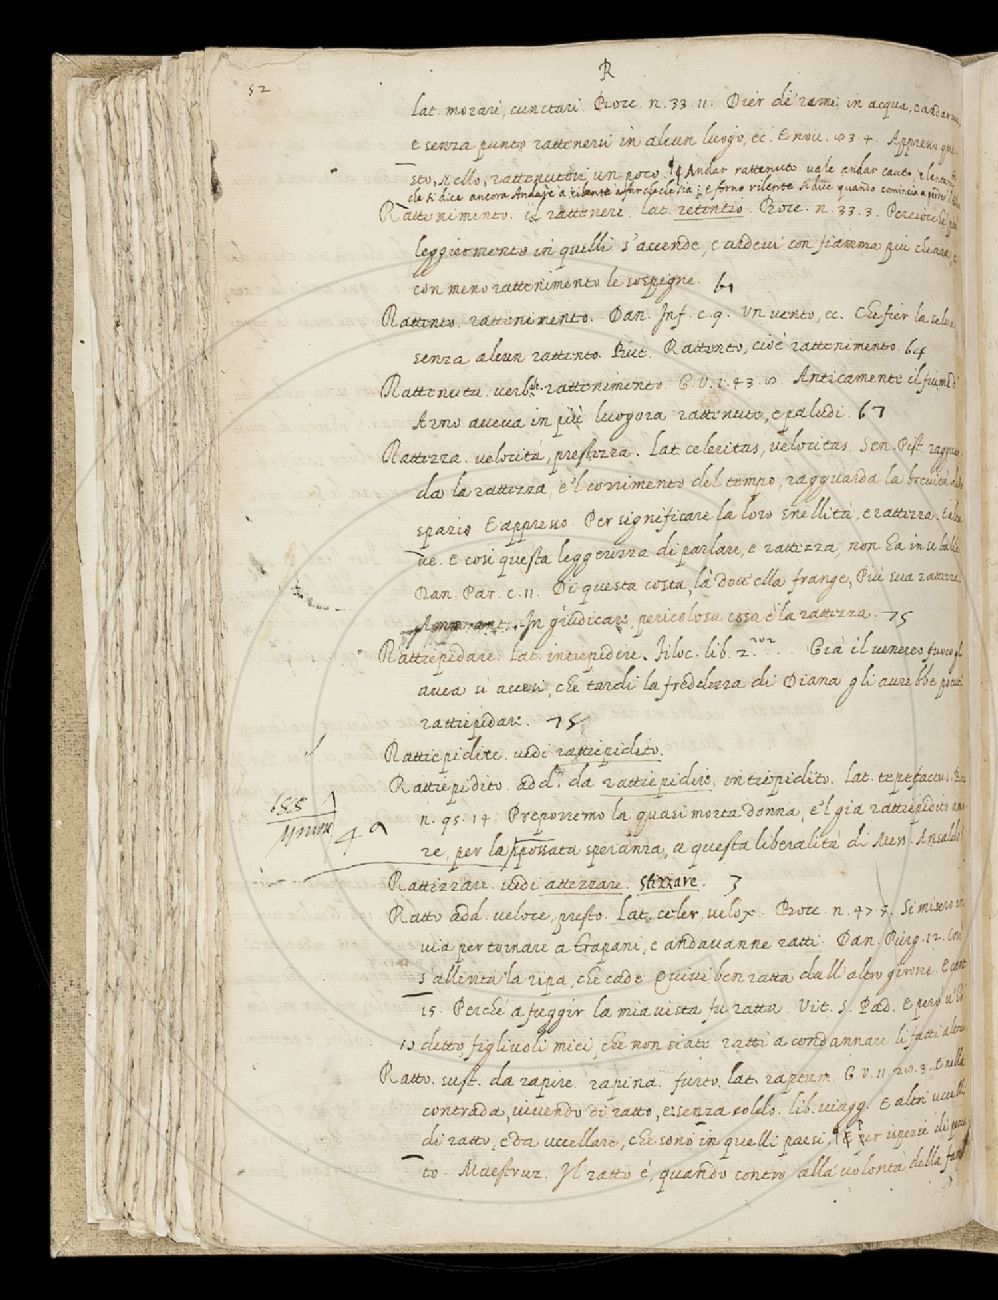 52
R
lat. morari, cunctari. Bocc. n. 33. 11. Dier de' rami in acqua, e andar
e senza punto rattenersi in alcun luogo, ec. E nou. 83. 4. Appresso que
sto, N ello, rattenutosi un poco. Andar rattenuto vale andar cauto, e lento
che si dice ancora Andare a rilente e fornerilente si dice quando comincia a
Rattenimento. il rattenere. lat. retentio. Bocc. n. 33. 3. Percioche più
leggiermente in quelli s'accende, e ardevi con fiamma più chiara, e
con meno rattenimento le sospegne. 61
Rattento. rattenimento. Dan. Inf. c. 9. Un vento, ec. Che fier la selva
senza alcun rattento. But. Rattento, cioè rattenimento. 64
Rattenuta. verb. rattenimento. G. V. 1. 43. 8. Anticamente il fiume d'
Arno aveva in più luogora rattenute, e paludi. 67
Rattezza. velocità, prestezza. Lat. celeritas, velocitas. Sen. Pist. ragguar
da la rattezza, e 'l corrimento del tempo, ragguarda la brevità dello
spazio. E appresso. Per significare la loro snellità, e rattezza. E altro
ve. e così questa leggerezza di parlare, e rattezza, non ha in se balìa
Dan. Par. c. 11. Di questa costa, là dov'ella frange, Più sua rattezza.
Ammant. In giudicare pericolosa cosa è la rattezza. 75
Rattiepidare. Lat. intiepidire. Filoc. lib. 2. 202. Già il venereo fuoco gli
avea sì accesi, che tardi la freddezza di Diana gli avrebbe potuti
rattiepidare. 75
Rattiepidire. vedi rattiepidito.
Rattiepidito. add. da rattiepidire, intiepidito. Lat. tepefactus. Bocc
n. 95. 14. Preporremo la quasi morta donna, e 'l già rattiepidito amo
188
49
re, per la spossata speranza, a questa liberalità di Mess. Ansaldo
Rattizzare. vedi attizzare. stizzare. 3
Ratto add. veloce, presto. Lat. celer, velox. Bocc. n. 47. 5. Si misero in
via per tornare a Trapani, e andavanne ratti. Dan. Purg. 12. Così
s'allenta la ripa, che cade Quivi ben ratta dall'altro girone. E cant.
15. Perchè a fuggir la mia vista fu ratta. Vit. S. Pad. E però v'ho
detto, figliuoli miei, che non siate ratti a condannare li fatti altrui
Ratto. sust. da rapire. rapina. furto. lat. raptum. G. V. 11. 28. 3. E nella
contrada, vivendo di ratto, e senza soldo. lib. viagg. E altri uccelli
di ratto, e da uccellare, che sono in quelli paesi. per ispezie di pecca
to. Maestruz. Il ratto è, quando contro alla volontà della fan